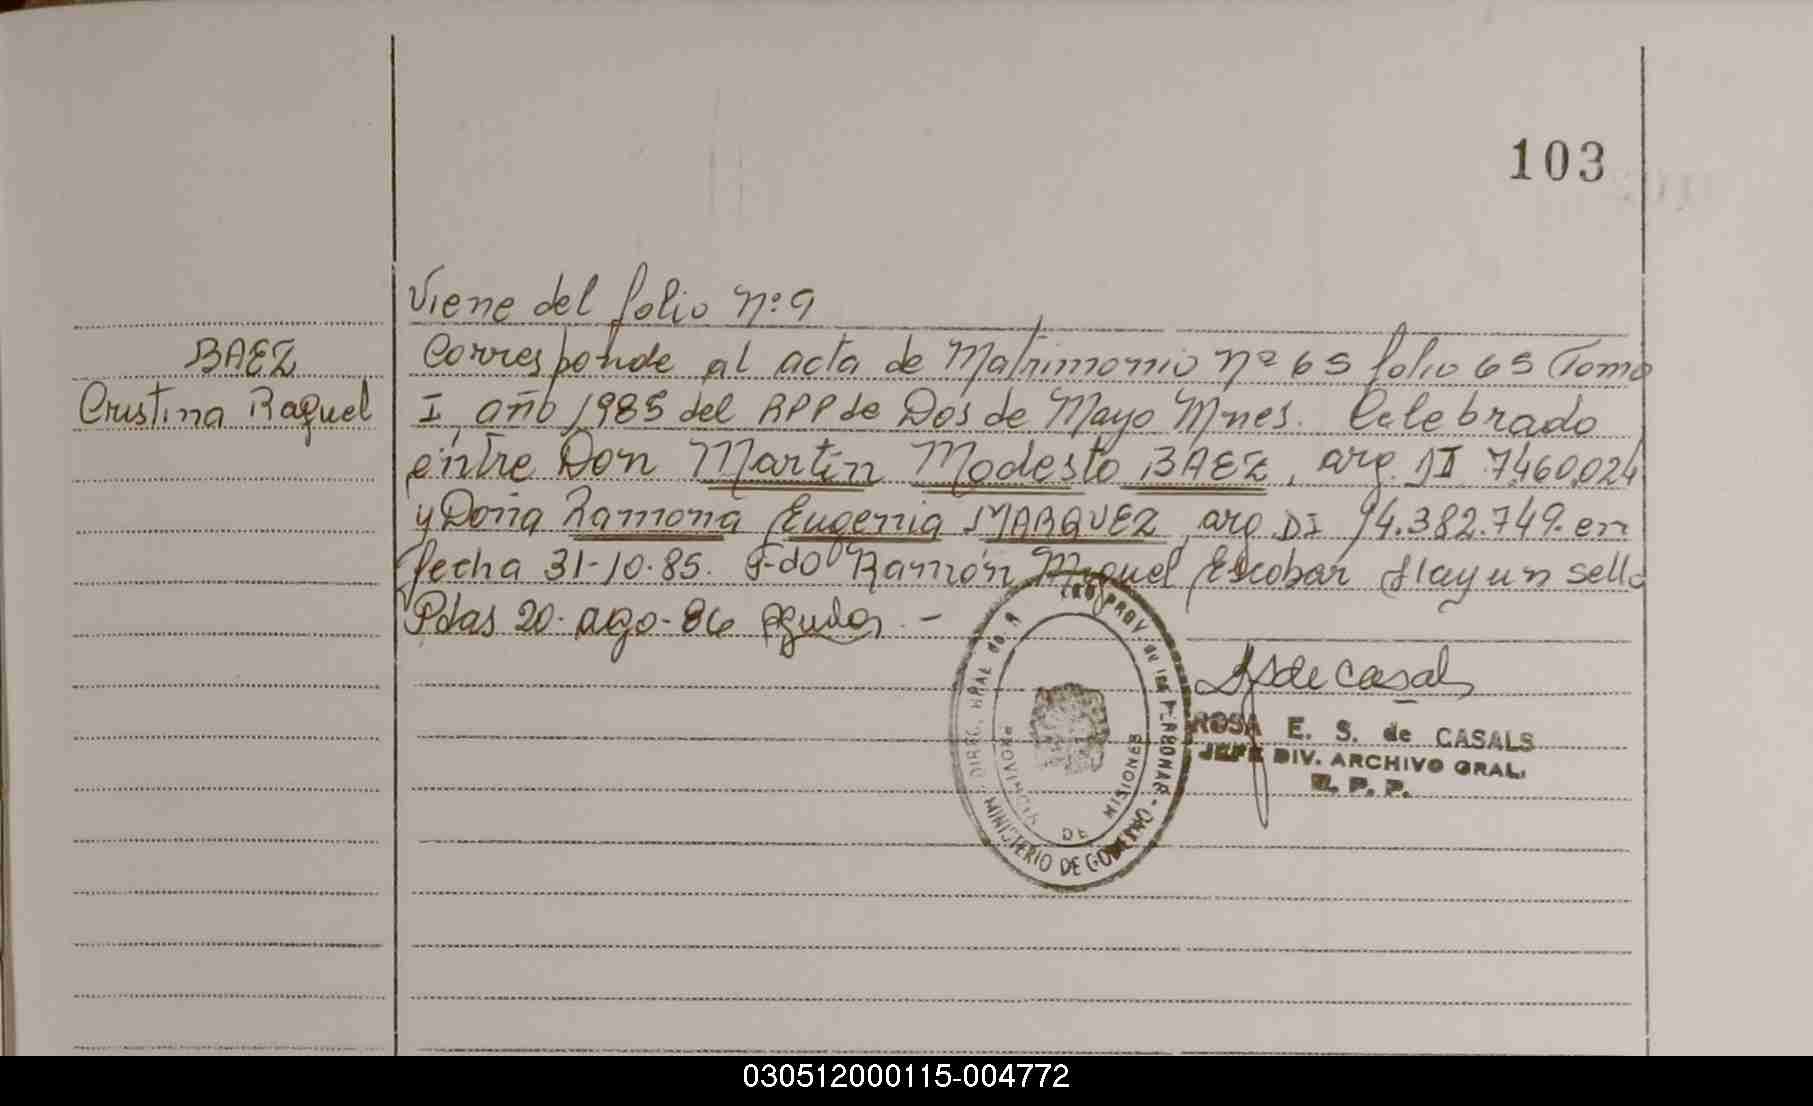 103
Viene del folio Nº 9
BAEZ
Cristina Raquel
Corresponde al acta de Matrimonio nº 65 folio 65 Tomo
I, año 1985 del RPP de Dos de Mayo Mnes. Celebrado
entre Don Martin Modesto BAEZ, arg. DI 7.460.024
y Doña Ramona Eugenia MARQUEZ, arg. DI 14.382.749. en
fecha 31-10-85. Fdo Ramón Miguel Escobar Hay un sello
Pdas 20. ago. 86 -
DE
MINISTERIO DE GOBIERNO
PROVINCIA DE MISIONES
ROSA E. S. de CASALS
JEFE DIV. ARCHIVO GRAL.
R. P. P.
030512000115-004772